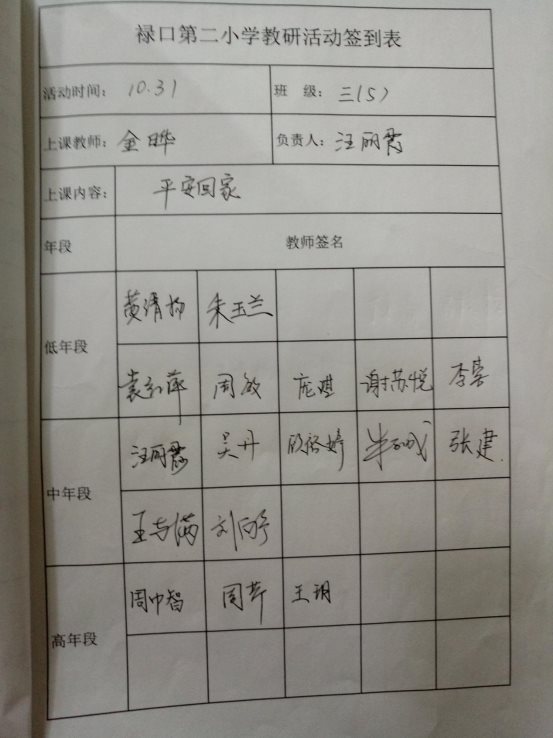 禄口第二小学教研活动签到表
活动时间： 10.31 班 级： 三(5)
上课教师： 金晔 负责人： 汪丽霞
上课内容： 平安回家
年段 教师签名
黄清扬 朱玉兰
低年段
周敏 庞琪 谢苏悦 李蓉
汪丽霞 吴丹 张建
中年段
周中智 周芹 王玥
高年段